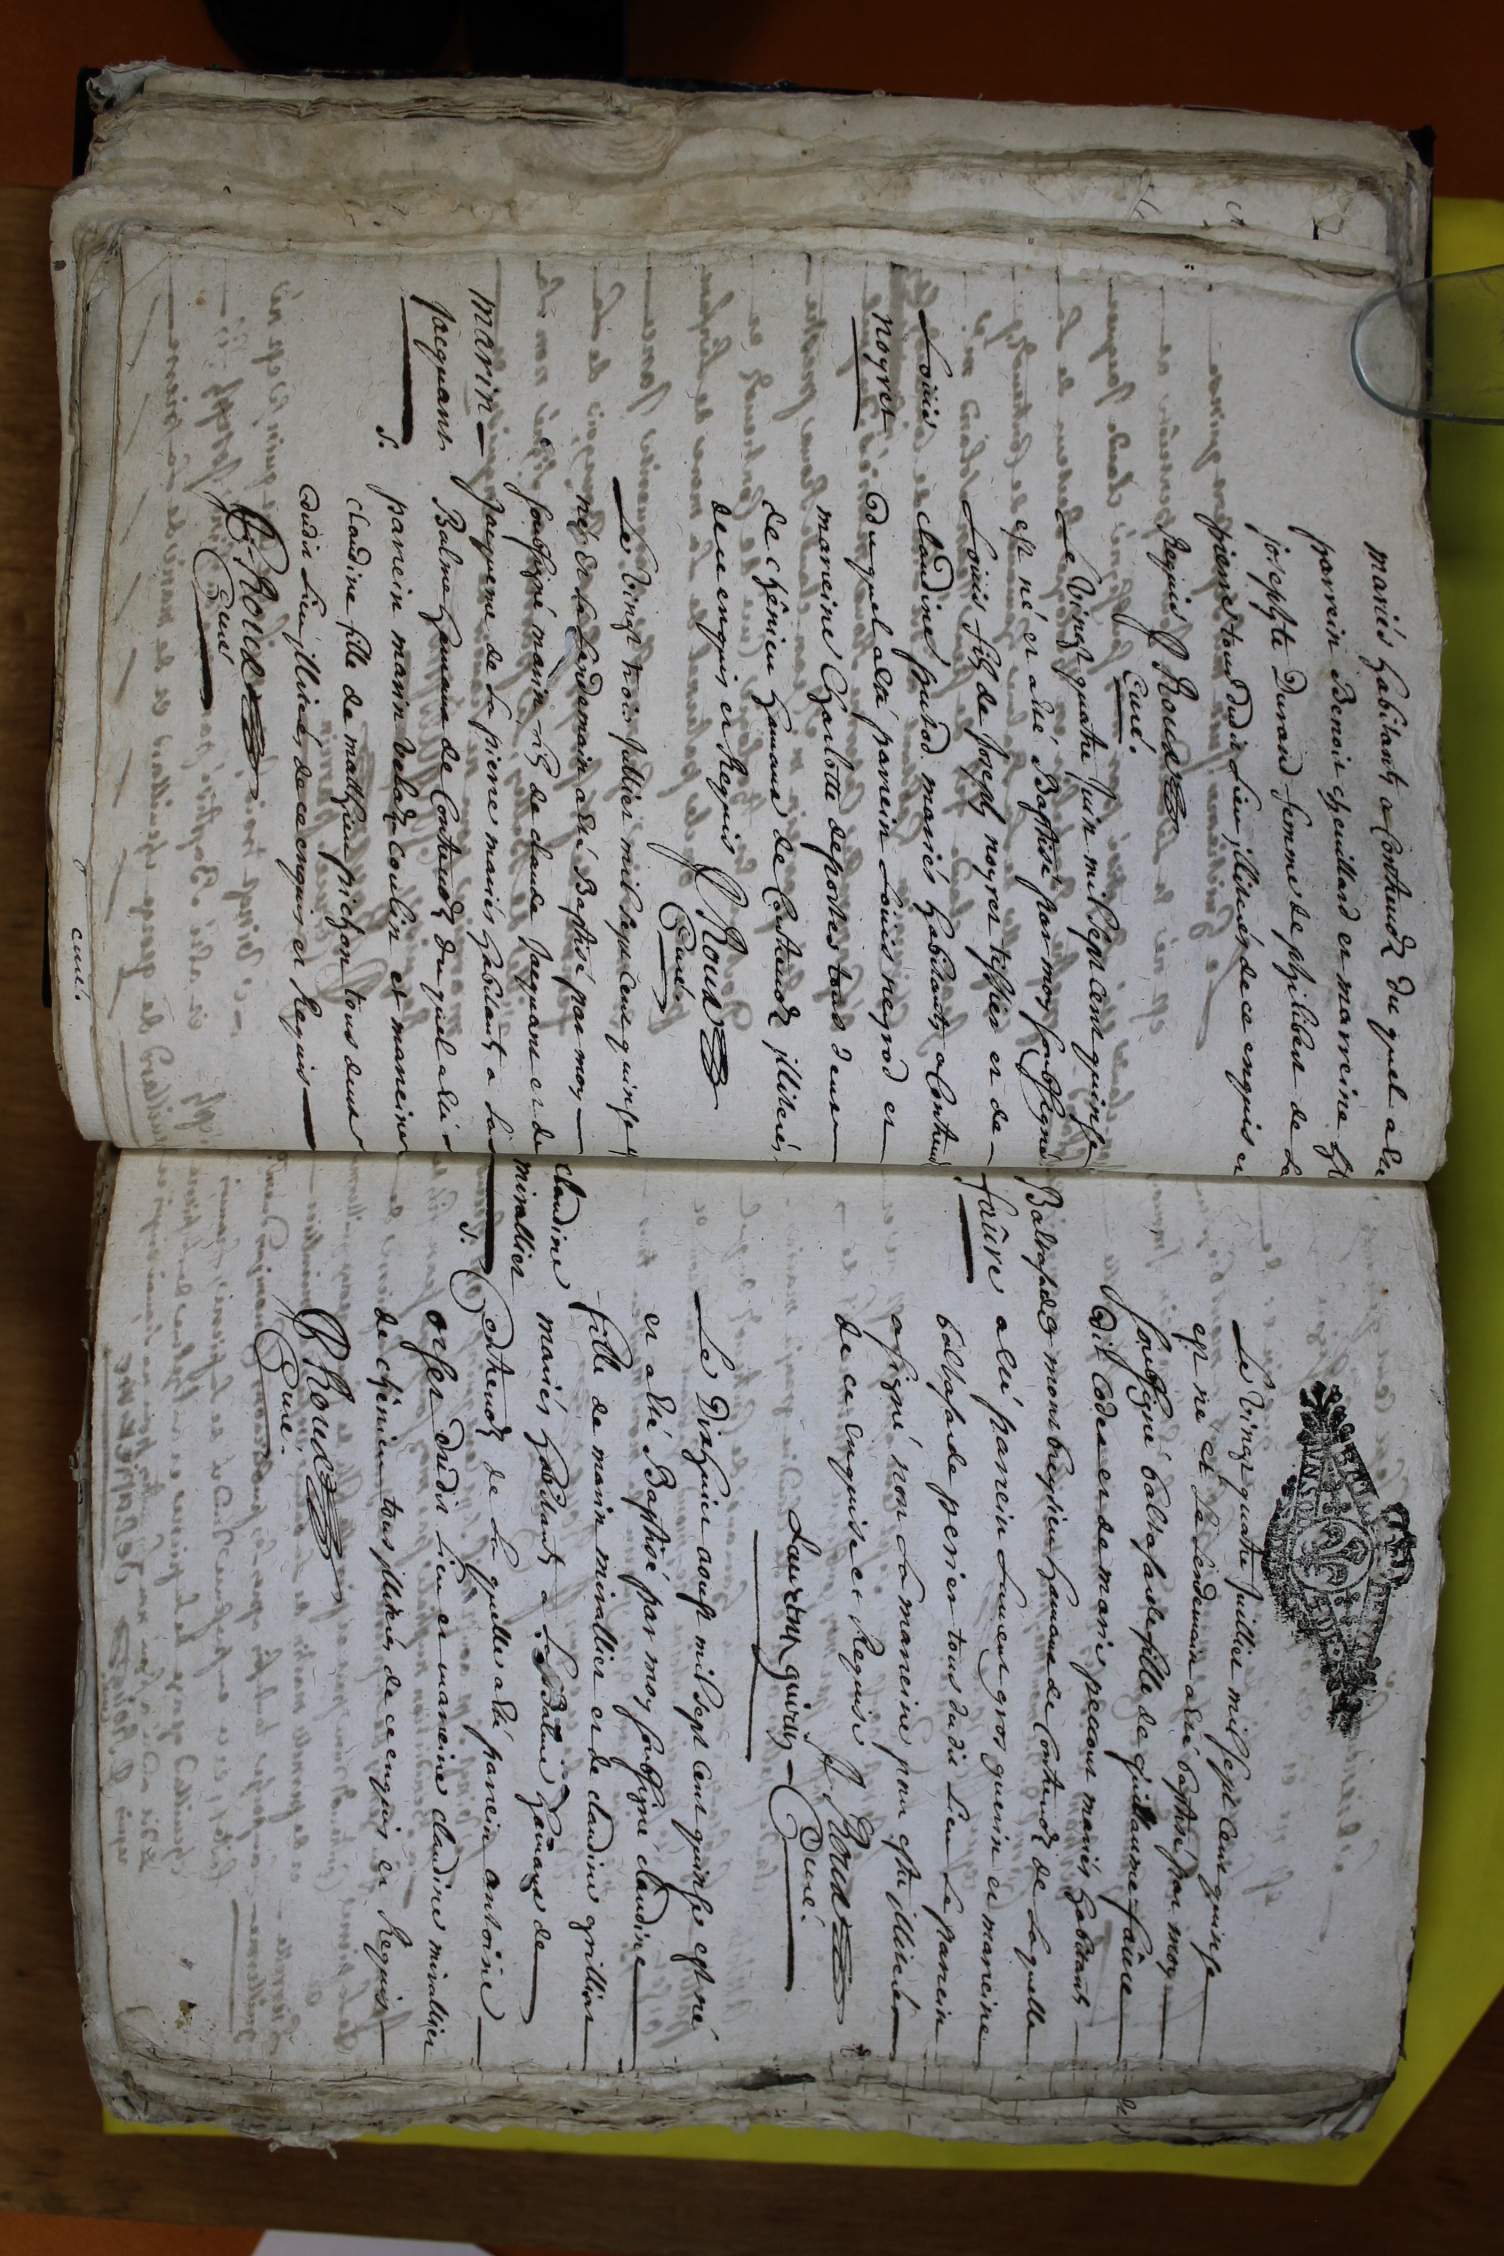 mariés habitants a Contenoz du quel a lté
parrein Benoit chevillard et marreine
josephte Durand femme de philibert de La
pierre tous dudit Lieu illiterés de ce enquis et
Requis J Roux
Curé.
Louis
noyret
Le Vingt quatre Juin mil sept cent quinse
est né et a lté Baptisé par moy soubsigné
Louis fils de Joseph noyret tissier et de
claudine putod mariés habitants a Conteno
duquel a lté parrein Louis negrod et
mareine Charlotte deportes tous deux
de chênieu hamaux de Contenoz illiterés
de ce enquis et Requis J Roux
Curé.
marin
Jacquant
S.
Le Vingt trois Juillet mil sept cent quinse
né et Le Lendemain a lté Baptisé par moy
soubsigné marin fils de claude Jacquant et de
Jaqueme de La pierre mariés habitants a La
Balme hamaux de Contenoz du quel a lté
parrein marin coulin et mareine
claudine fille de matthieu pichon tous deux
dudit Lieu illiterés de ce enquis et Requis
J Roux
Curé
curé.
Balthasarde
faûre
Le Vingt quatre Juillet mil sept cent quinse
est né et Le Lendemain a lté baptisé par moy
soubsigné baltasarde fille de guillaume faûre
dit Codex et de marie pecour mariés habitants
a hamaux de Contenoz de Laquelle
a lté parrein Laurent gros guerin et mareine
baltasarde perrier tous dudit Lieu Le parrein
a signé non La mareine pour estre illiterée
de ce Enquise et Requise J Roux
Laurent guirin Curé.
claudine
mirallier
S.
Le Dixhuit aoust mil sept cent quinse est né
et a lté Baptisé par moy soubsigné claudine
fille de marin mirallier et de claudine grilliat
mariés habitants a La Balme hamaux de
Contenoz de La quelle a lté parrein antoine
orset dudit Lieu et mareine claudine mirallier
de chênieu tous illiterés de ce enquis et Requis
J Roux
Curé.